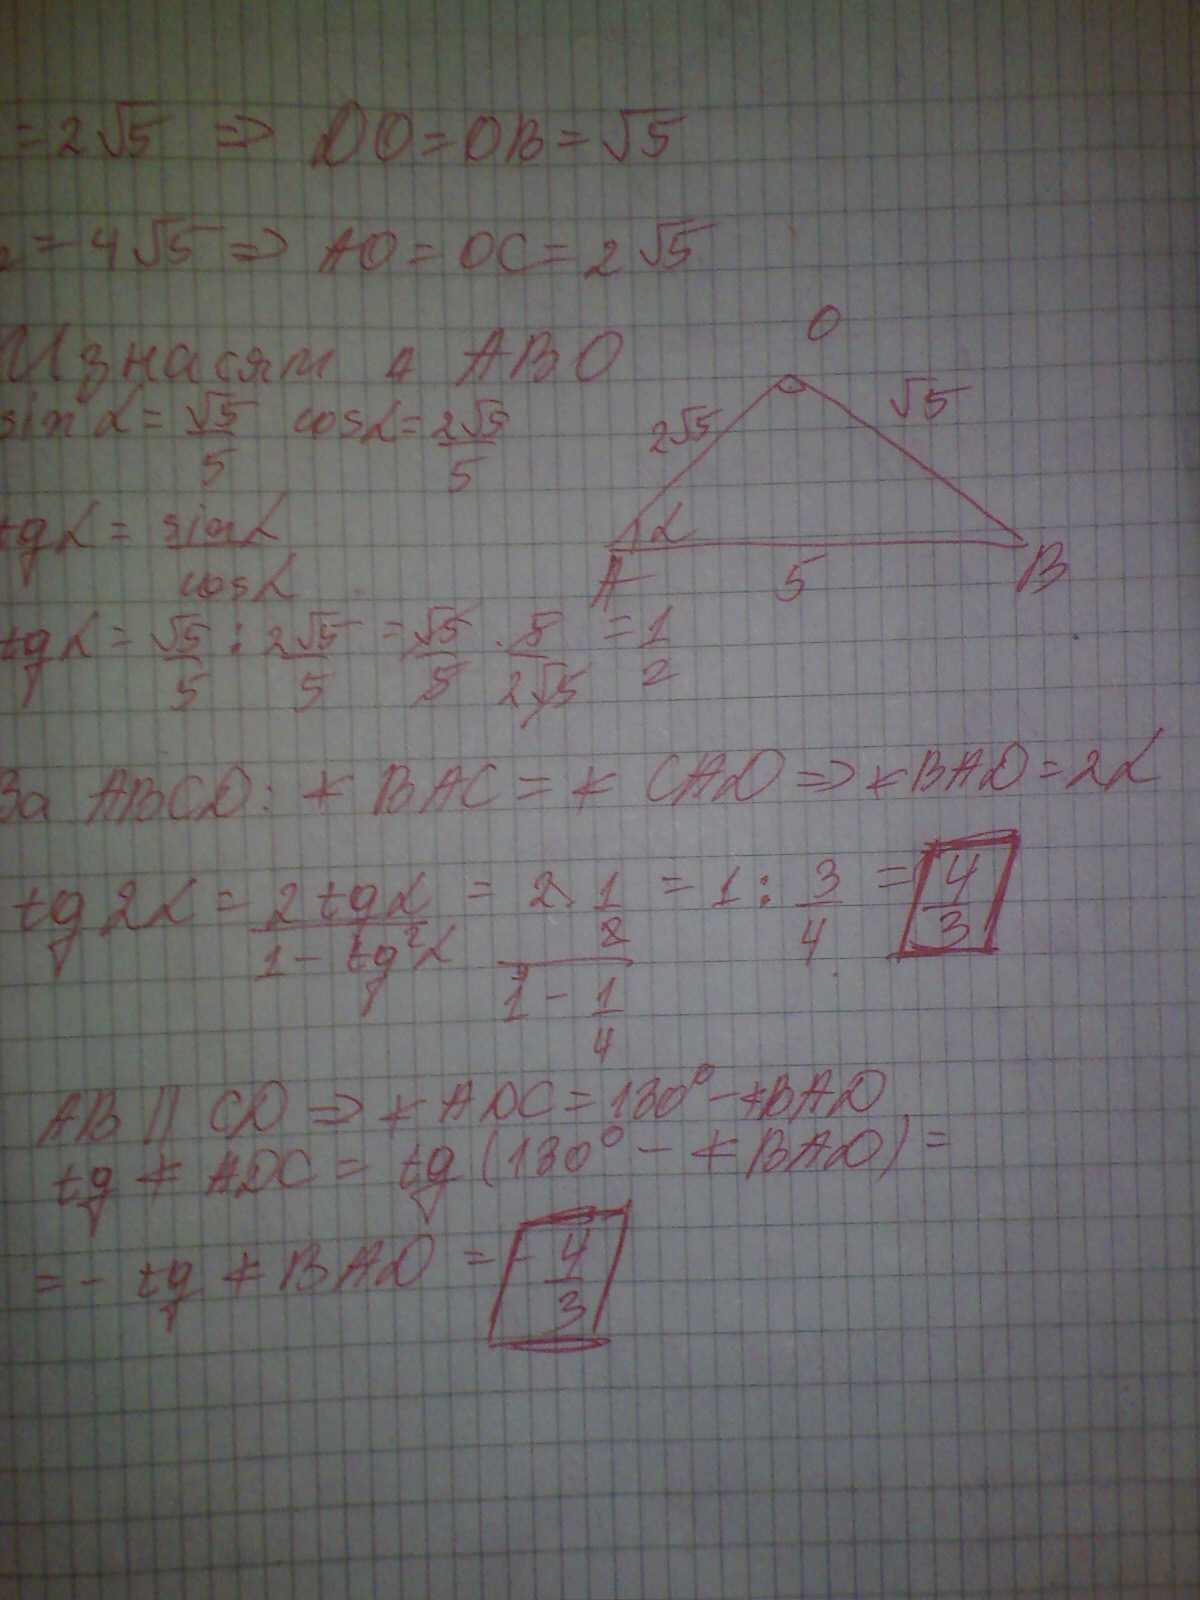 = 2√5 => DO = OB = √5
2 = 4√5 => AO = OC = 2√5
Изнасям △ ABO
sin α = √5/5 cos α = 2√5/5
O
2√5
√5
α
A
5
B
tg α = sin α/cos α
tg α = √5/5 : 2√5/5 = √5/5 . 5/2√5 = 1/2
За ABCD: ∢ BAC = ∢ CAD => ∢ BAD = 2α
tg 2α = 2 tg α/1 - tg²α = 2.1/2/1 - 1/4 = 1 : 3/4 = 4/3
AB || CD => ∢ ADC = 180° - ∢BAD
tg ∢ ADC = tg (180° - ∢ BAD) =
= - tg ∢ BAD = - 4/3